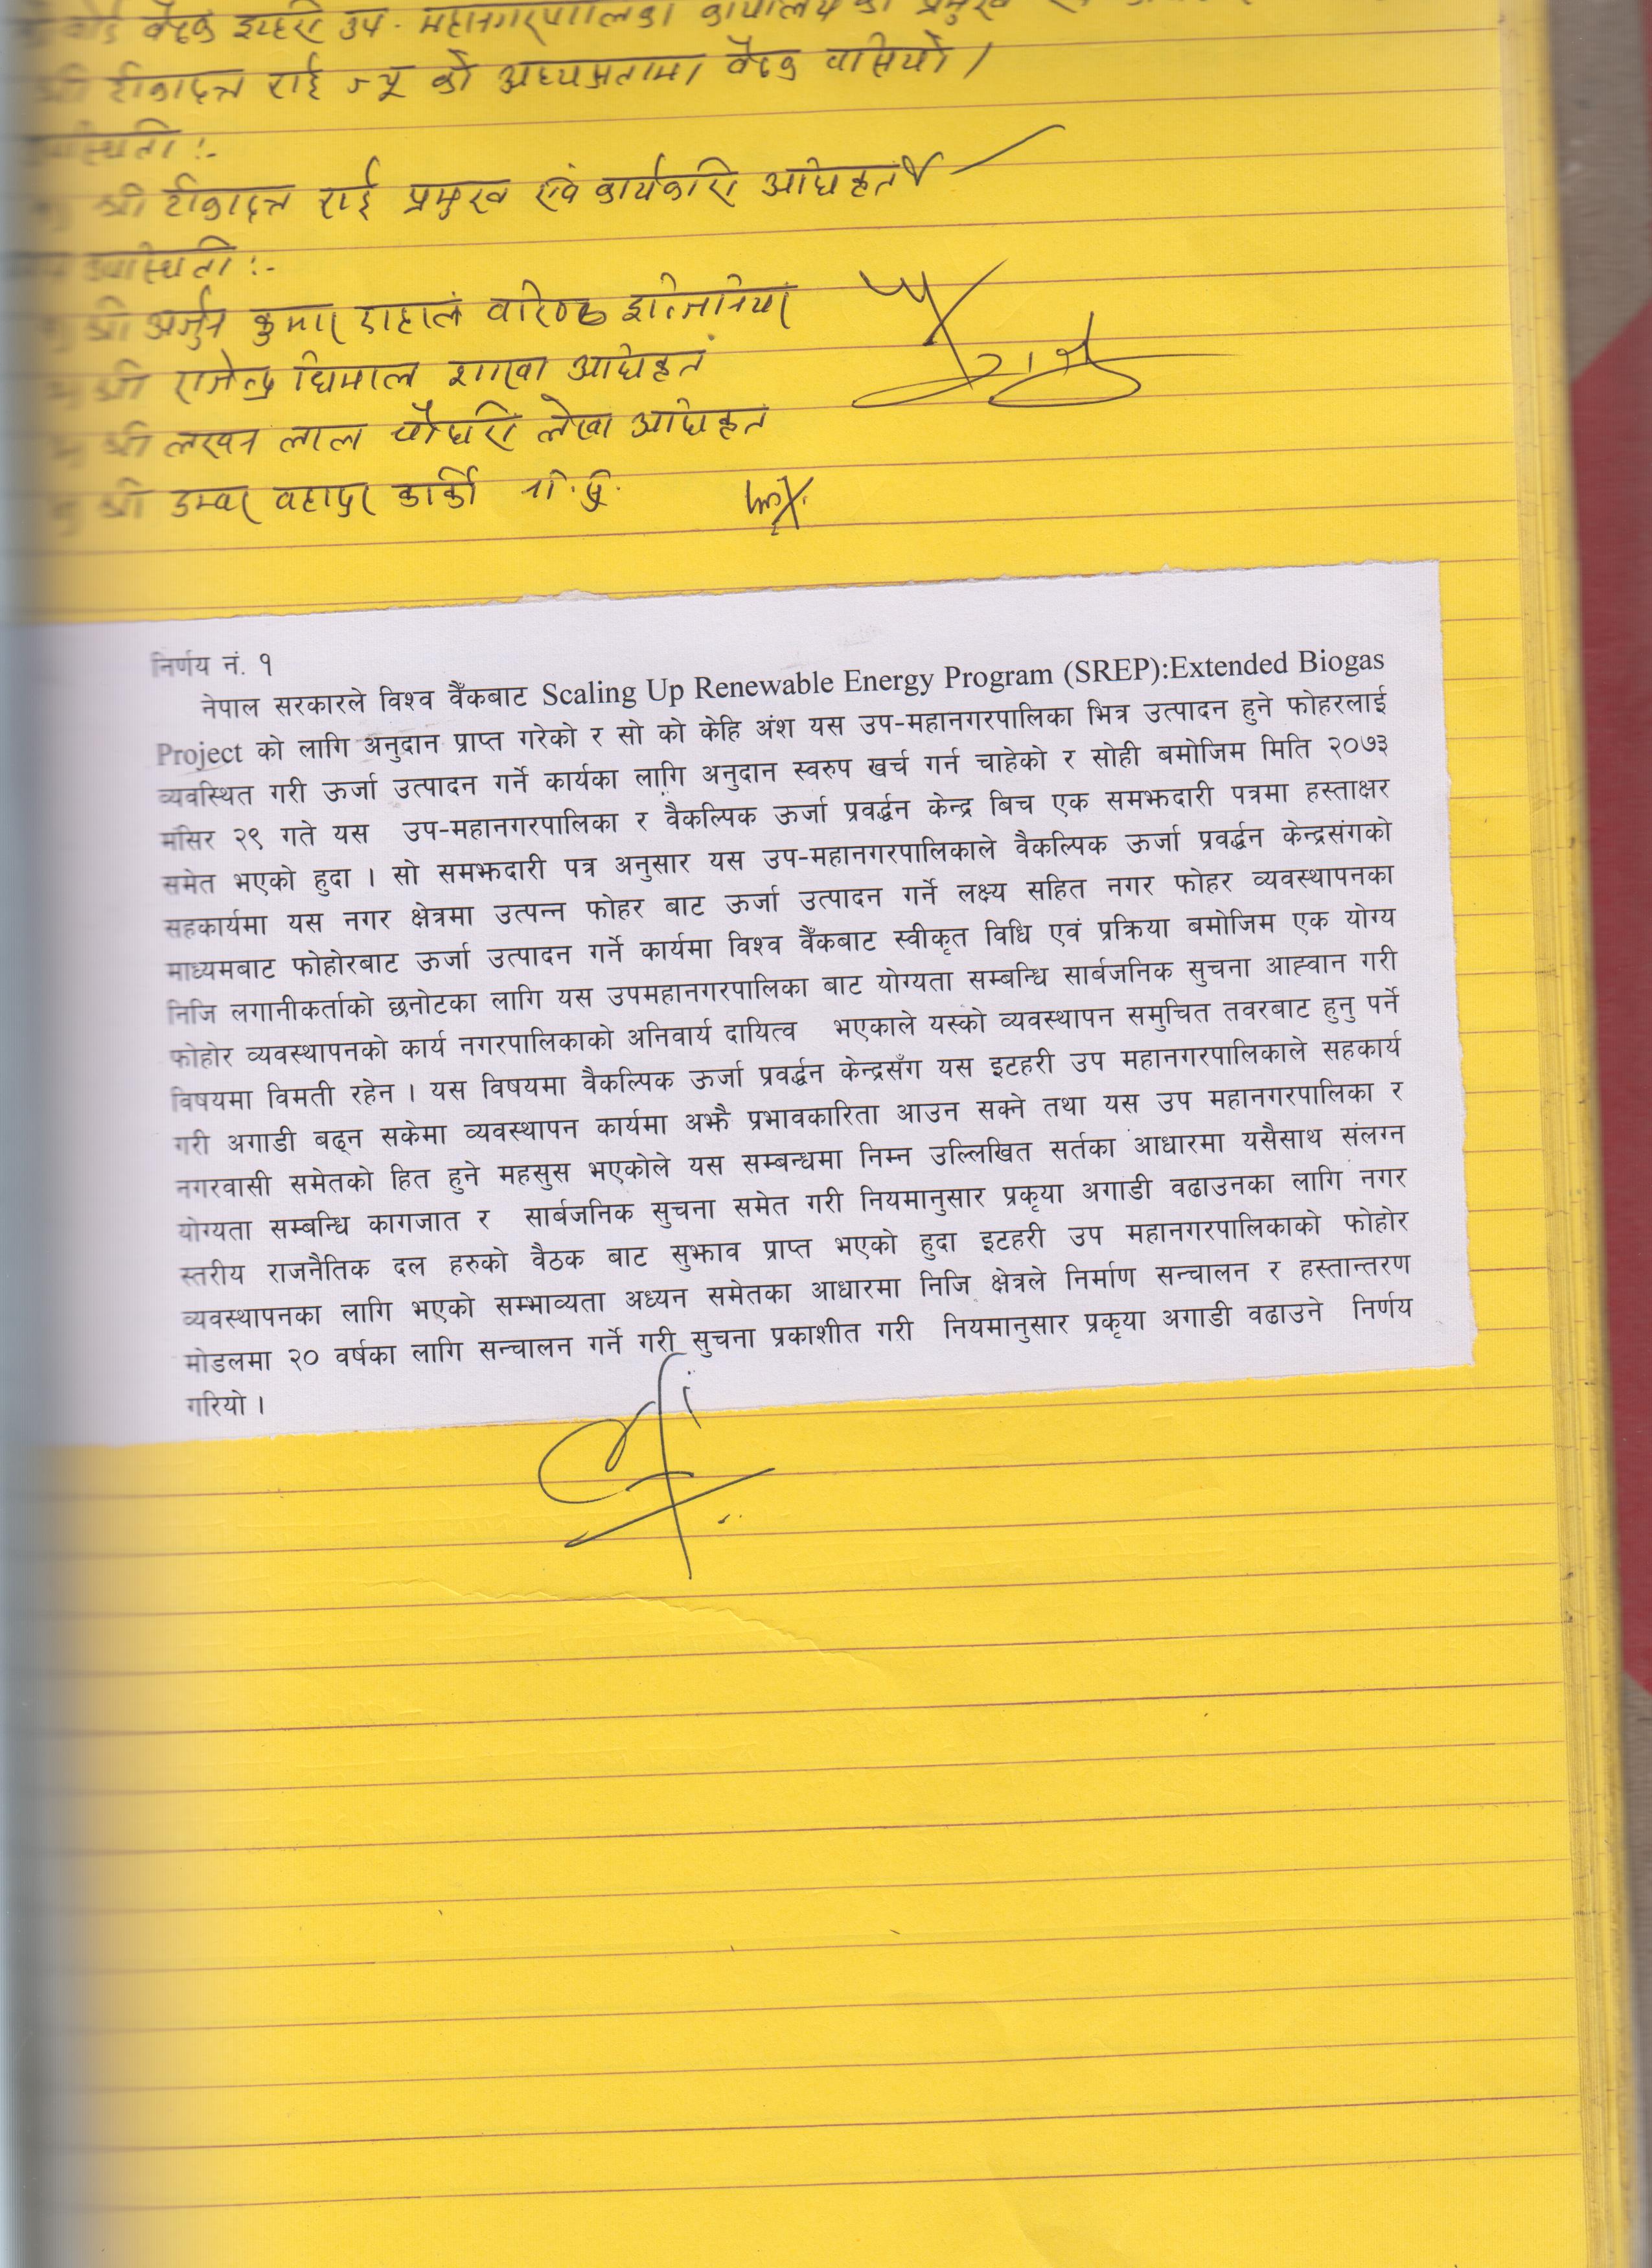 बोर्ड बैठक इटहरी उप-महानगरपालिका कार्यालय का प्रमुख
श्री टीकादत्त राई ज्यू को अध्यक्षतामा बैठक वसियो ।
उपस्थिती :-
श्री टीकादत्त राई प्रमुख एवं कार्यकारी अधिकृत
उपस्थिती :-
श्री अर्जुन कुमार दाहाल वरिष्ठ इन्जिनियर
श्री राजेन्द्र धिमाल शाखा अधिकृत
श्री लखन लाल चौधरी लेखा अधिकृत
श्री डम्वर वहादुर कार्की ना.सु.
निर्णय नं. १
नेपाल सरकारले विश्व वैँकबाट Scaling Up Renewable Energy Program (SREP):Extended Biogas
Project को लागि अनुदान प्राप्त गरेको र सो को केहि अंश यस उप-महानगरपालिका भित्र उत्पादन हुने फोहरलाई
व्यवस्थित गरी ऊर्जा उत्पादन गर्ने कार्यका लागि अनुदान स्वरुप खर्च गर्न चाहेको र सोही बमोजिम मिति २०७३
मंसिर २९ गते यस उप-महानगरपालिका र वैकल्पिक ऊर्जा प्रवर्द्धन केन्द्र बिच एक समझदारी पत्रमा हस्ताक्षर
समेत भएको हुदा । सो समझदारी पत्र अनुसार यस उप-महानगरपालिकाले वैकल्पिक ऊर्जा प्रवर्द्धन केन्द्रसंगको
सहकार्यमा यस नगर क्षेत्रमा उत्पन्न फोहर बाट ऊर्जा उत्पादन गर्ने लक्ष्य सहित नगर फोहर व्यवस्थापनका
माध्यमबाट फोहोरबाट ऊर्जा उत्पादन गर्ने कार्यमा विश्व वैँकबाट स्वीकृत विधि एवं प्रक्रिया बमोजिम एक योग्य
निजि लगानीकर्ताको छनोटका लागि यस उपमहानगरपालिका बाट योग्यता सम्बन्धि सार्बजनिक सुचना आह्वान गरी
फोहोर व्यवस्थापनको कार्य नगरपालिकाको अनिवार्य दायित्व भएकाले यस्को व्यवस्थापन समुचित तवरबाट हुनु पर्ने
विषयमा विमती रहेन । यस विषयमा वैकल्पिक ऊर्जा प्रवर्द्धन केन्द्रसँग यस इटहरी उप महानगरपालिकाले सहकार्य
गरी अगाडी बढ्न सकेमा व्यवस्थापन कार्यमा अझै प्रभावकारिता आउन सक्ने तथा यस उप महानगरपालिका र
नगरवासी समेतको हित हुने महसुस भएकोले यस सम्बन्धमा निम्न उल्लिखित सर्तका आधारमा यसैसाथ संलग्न
योग्यता सम्बन्धि कागजात र सार्बजनिक सुचना समेत गरी नियमानुसार प्रकृया अगाडी वढाउनका लागि नगर
स्तरीय राजनैतिक दल हरुको वैठक बाट सुझाव प्राप्त भएको हुदा इटहरी उप महानगरपालिकाको फोहोर
व्यवस्थापनका लागि भएको सम्भाव्यता अध्यन समेतका आधारमा निजि क्षेत्रले निर्माण सन्चालन र हस्तान्तरण
मोडलमा २० वर्षका लागि सन्चालन गर्ने गरी सुचना प्रकाशीत गरी नियमानुसार प्रकृया अगाडी वढाउने निर्णय
गरियो ।